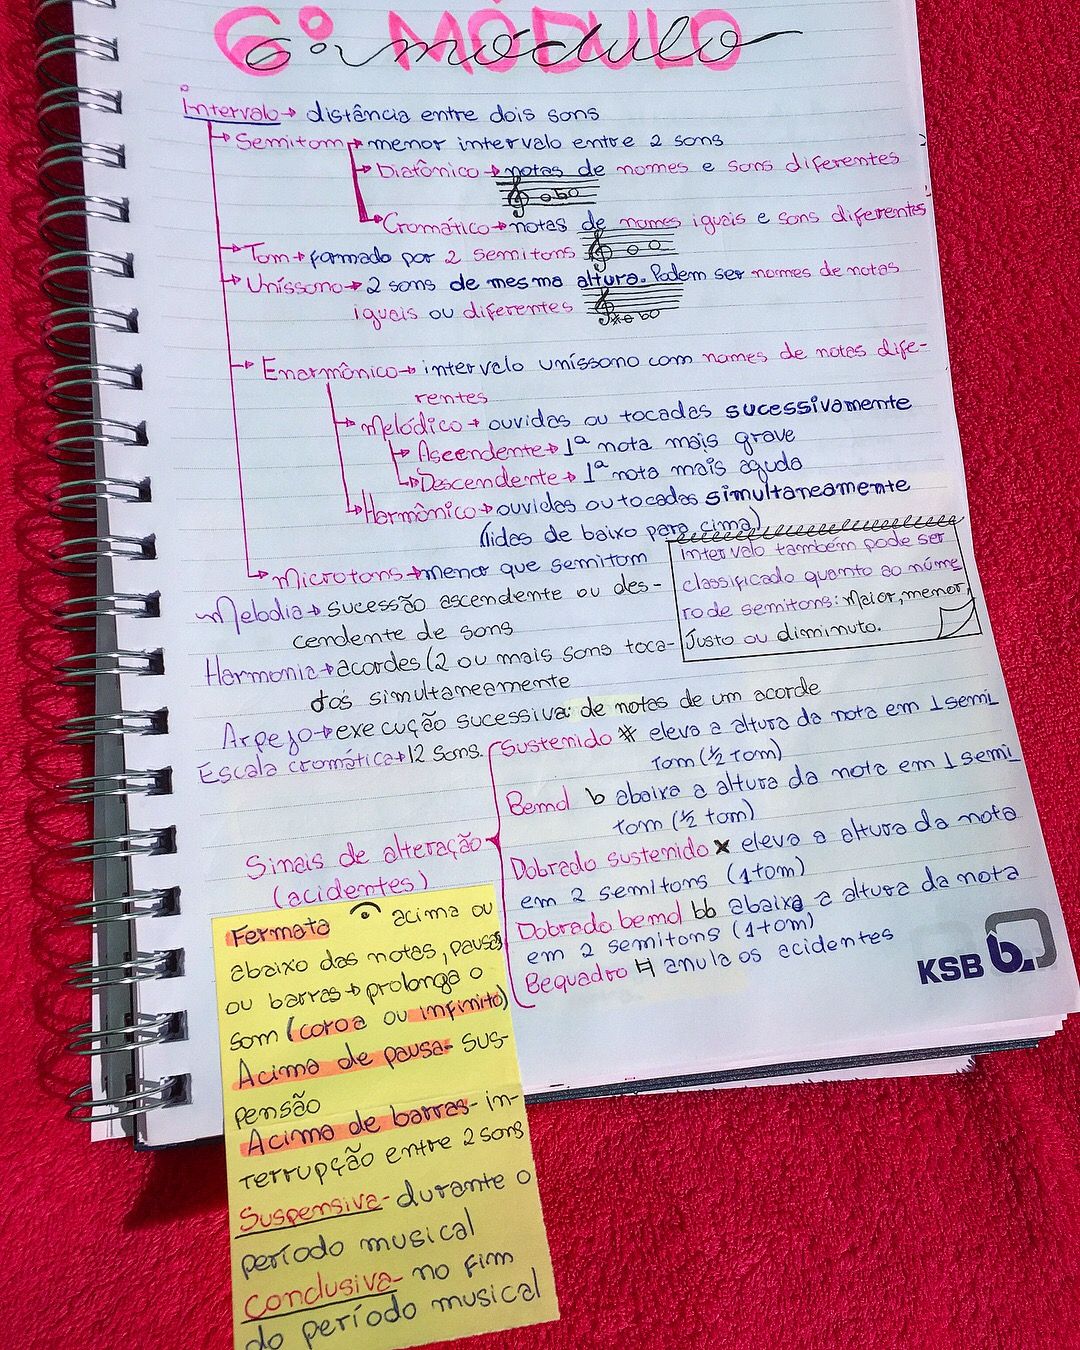 6º MÓDULO
6º módulo
Intervalo → distância entre dois sons
Semitom → menor intervalo entre 2 sons
Diatônico → notas de nomes e sons diferentes
Cromático → notas de nomes iguais e sons diferentes
Tom → formado por 2 semitons
Uníssono → 2 sons de mesma altura. Podem ser nomes de notas
iguais ou diferentes
Enarmônico → intervalo uníssono com nomes de notas dife-
rentes
Melódico → ouvidas ou tocadas sucessivamente
Ascendente → 1ª nota mais grave
Descendente → 1ª nota mais aguda
Harmônico → ouvidas ou tocadas simultaneamente
(lidas de baixo para cima)
Microtons → menor que semitom
intervalo também pode ser
classificado quanto ao núme
ro de semitons: Maior, menor,
Justo ou diminuto.
Melodia → sucessão ascendente ou des-
cendente de sons
Harmonia → acordes (2 ou mais sons toca-
dos simultaneamente
Arpejo → execução sucessiva de notas de um acorde
Escala cromática → 12 sons.
Sinais de alteração
(acidentes)
Sustenido # eleva a altura da nota em 1 semi
tom (1/2 tom)
Bemol b abaixa a altura da nota em 1 semi
tom (1/2 tom)
Dobrado sustenido x eleva a altura da nota
em 2 semitons (1 tom)
Dobrado bemol bb abaixa a altura da nota
em 2 semitons (1 tom)
Bequadro ♮ anula os acidentes
Fermata 𝄐 acima ou
abaixo das notas, pausas
ou barras → prolonga o
som (coroa ou infinito)
Acima de pausa - sus-
pensão
Acima de barras - in-
terrupção entre 2 sons
Suspensiva - durante o
período musical
Conclusiva - no fim
do período musical
KSB